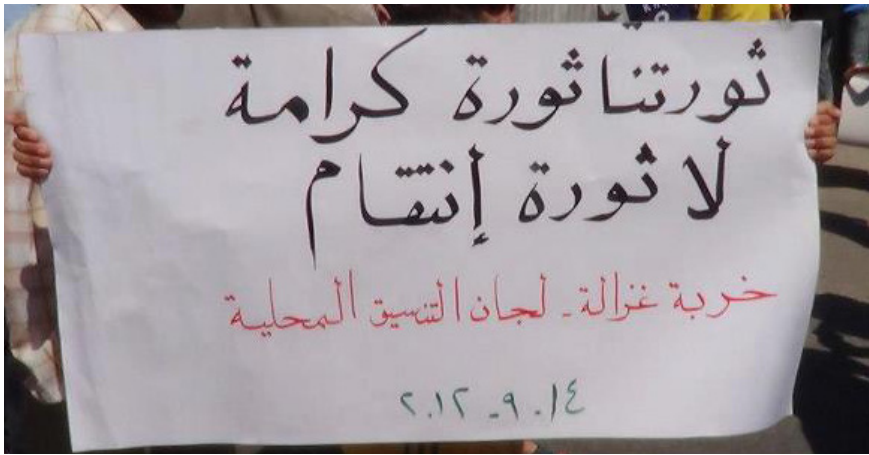 ثورتنا ثورة كرامة
لا ثورة إنتقام
خربة غزالة - لجان التنسيق المحلية
١٤ - ٩ - ٢٠١٢